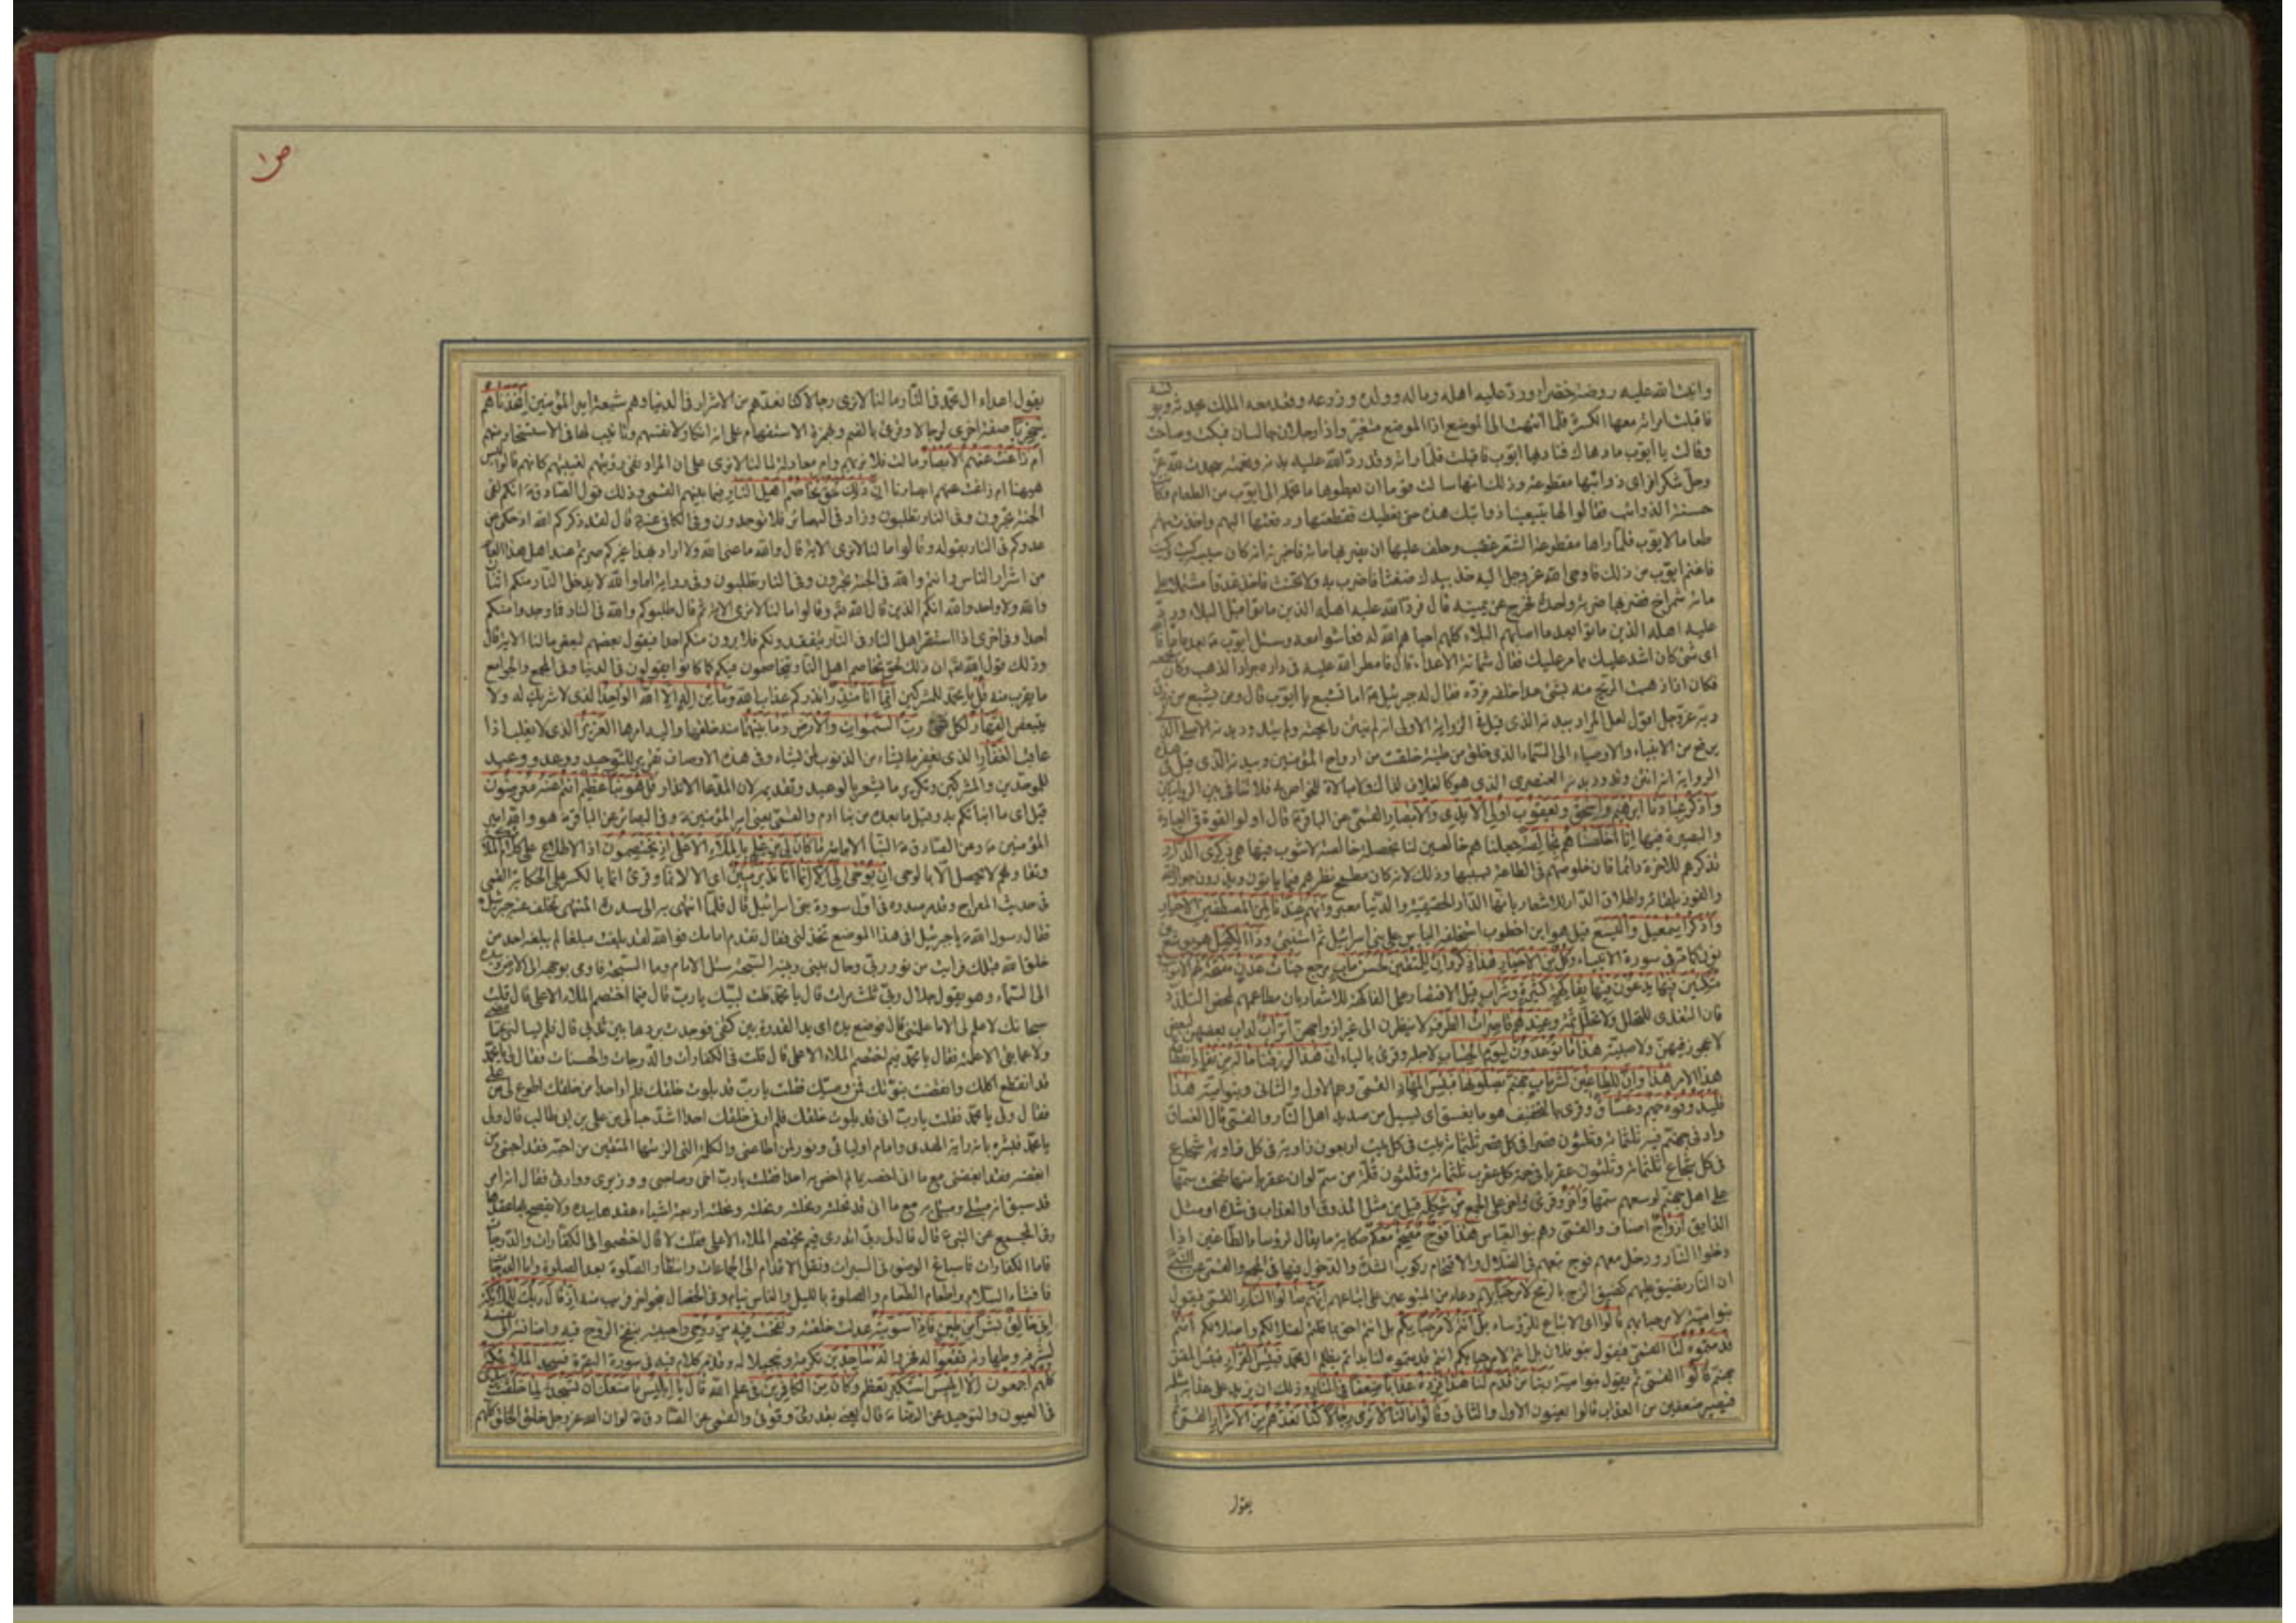 وانبت الله عليه روضة خضراء ورد عليه اهله وماله وولده وزرعه وقعد معه الملك يحدثه ويونسه
فاقبلت امراته معها الكسرة فلما انتهت الى الموضع اذا الموضع متغير واذا رجلان جالسان فبكت وصاحت
وقالت يا ايوب ما دهاك فناداها ايوب فاقبلت فلما راته وقد رد الله عليه بدنه ونعمته سجدت لله عز
وجل شكرا فراى ذوائبها مقطوعة وذلك انها سالت قوما ان يعطوها ما تحمله الى ايوب من الطعام وكانت
حسنة الذوائب فقالوا لها تبيعينا ذوائبك هذه حتى نعطيك فقطعتها ودفعتها اليهم واخذت منهم
طعاما لايوب فلما راها مقطوعة الشعر غضب وحلف عليها ان يضربها مائة فاخبرته انه كان سببه كيت وكيت
فاغتم ايوب من ذلك فاوحى الله عز وجل اليه خذ بيدك ضغثا فاضرب به ولا تحنث فاخذ عذقا مشتملا على
مائة شمراخ فضربها ضربة واحدة فخرج عن يمينه قال فرد الله عليه اهله الذين ماتوا قبل البلاء ورد
عليه اهله الذين ماتوا بعد ما اصابهم البلاء كلهم احياهم الله له فعاشوا معه وسئل ايوب ع بعد ما عافاه
اى شئ كان اشد عليك مما مر عليك فقال شماتة الاعداء قال فامطر الله عليه فى داره جراد الذهب وكان يجمعه
فكان اذا ذهبت الريح منه بشئ عدا خلفه فرده فقال له جبرئيل ع اما تشبع يا ايوب قال ومن يشبع من رزق
ربه عز وجل اقول لعل المراد ببدنه الذى قيل فى الرواية الاولى انه لم ينتن رائحته ولم يتدود بدنه الاصلى الذى
يرفع من الانبياء والاوصياء الى السماء الذى خلق من طينة خلقت من ارواح المؤمنين وببدنه الذى قيل فى هذه
الرواية انه انتن وتدود بدنه العنصرى الذى هو كالغلاف لذاك ولا مبالاة للخواص به فلا تنافى بين الروايتين
واذكر عبادنا ابرهيم واسحق ويعقوب اولى الايدى والابصار القمى عن الباقر ع قال اولوا القوة فى العبادة
والبصيرة فيها انا اخلصناهم بخالصة جعلناهم خالصين لنا بخصلة خالصة لا شوب فيها هى ذكرى الدار
تذكرهم للاخرة دائما فان خلوصهم فى الطاعة بسببها وذلك لانه كان مطمح نظرهم فيما ياتون ويذرون جوار الله
والفوز بلقائه واطلاق الدار للاشعار بانها الدار الحقيقية والدنيا معبر وانهم عندنا لمن المصطفين الاخيار
واذكر اسمعيل واليسع قيل هو ابن اخطوب استخلفه الياس على بنى اسرائيل ثم استنبئ وذا الكفل هو يوشع بن
نون كما مر فى سورة الانبياء وكل من الاخيار هذا ذكر وان للمتقين لحسن ماب مرجع جنات عدن مفتحة لهم الابواب
متكئين فيها يدعون فيها بفاكهة كثيرة وشراب قيل الاقتصار على الفاكهة للاشعار بان مطاعمهم لمحض التلذذ
فان التغذى للتحلل ولا تحلل ثمة وعندهم قاصرات الطرف لا ينظرن الى غير ازواجهن اتراب لدات بعضهن لبعض
لا عجوز فيهن ولا صبية هذا ما توعدون ليوم الحساب لاجله وقرئ بالياء ان هذا لرزقنا ماله من نفاد انقطاع
هذا الامر هذا وان للطاغين لشر ماب جهنم يصلونها فبئس المهاد القمى وهم الاول والثانى وبنو امية هذا
فليذوقوه حميم وغساق وقرئ بالتخفيف هو ما يغسق اى يسيل من صديد اهل النار والقمى قال الغساق
واد فى جهنم فيه ثلثمائة وثلثون قصرا فى كل قصر ثلثمائة بيت فى كل بيت اربعون زاوية فى كل زاوية شجاع
فى كل شجاع ثلثمائة وثلثون عقربا فى جمجمة كل عقرب ثلثمائة وثلثون قلة من سم لو ان عقربا منها نفخت سمها
على اهل جهنم لوسعهم سمها واخر وقرئ واخر على الجمع من شكله قيل من مثل المذوق او العذاب فى شدته او مثل
الذايق ازواج اصناف والقمى وهم بنو العباس هذا فوج مقتحم معكم حكاية ما يقال لرؤساء الطاغين اذا
دخلوا النار ودخل معهم فوج تبعهم فى الضلال والاقتحام ركوب الشدة والدخول فيها فى المجمع والقمى عن النبى
ان النار تضيق عليهم كضيق الزج بالرمح لا مرحبا بهم دعاء من المتبوعين على اتباعهم انهم صالوا النار القمى فيقول
بنو امية لا مرحبا بهم قالوا اى الاتباع للرؤساء بل انتم لا مرحبا بكم بل انتم احق بما قلتم لضلالكم واضلالكم انتم
قدمتموه لنا القمى فيقول بنو فلان بل انتم لا مرحبا بكم انتم قدمتموه لنا بدأتم بظلم ال محمد فبئس القرار فبئس المقر
جهنم قالوا القمى ثم يقول بنو امية ربنا من قدم لنا هذا فزده عذابا ضعفا فى النار وذلك ان يزيد على عذابه مثله
فيصير ضعفين من العذاب قالوا يعنون الاول والثانى وقالوا ما لنا لا نرى رجالا كنا نعدهم من الاشرار القمى
يقول
ص۱
يقول اعداء ال محمد فى النار ما لنا لا نرى رجالا كنا نعدهم من الاشرار فى الدنيا وهم شيعة امير المؤمنين اتخذناهم
سخريا صفة اخرى لرجالا وقرئ بالضم وبهمزة الاستفهام على انه انكار لانفسهم وتانيب لها فى الاستسخار منهم
ام زاغت عنهم الابصار مالت فلا نريهم وام معادلة لما لنا لا نرى على ان المراد نفى رؤيتهم لغيبتهم كانهم قالوا ليس
هيهنا ام زاغت عنهم ابصارنا ان ذلك لحق تخاصم اهل النار فيما بينهم القمى وذلك قول الصادق ع انكم لفى
الجنة تحبرون وفى النار تطلبون وزاد فى البصائر فلا توجدون وفى الكافى عنه ع قال لقد ذكركم الله اذ حكى عن
عدوكم فى النار بقوله وقالوا ما لنا لا نرى الاية قال والله ما عنى الله ولا اراد بهذا غيركم صرتم عند اهل هذا العالم
من اشرار الناس وانتم والله فى الجنة تحبرون وفى النار تطلبون وفى رواية اما والله لا يدخل النار منكم اثنان لا
والله ولا واحد والله انكم الذين قال الله تع وقالوا ما لنا لا نرى الاية ثم قال طلبوكم والله فى النار فما وجدوا منكم
احدا وفى اخرى اذا استقر اهل النار فى النار يتفقدونكم فلا يرون منكم احدا فيقول بعضهم لبعض ما لنا الاية قال
وذلك قول الله تع ان ذلك لحق تخاصم اهل النار يتخاصمون فيكم كما كانوا يقولون فى الدنيا وفى المجمع والجوامع
ما يقرب منه قل يا محمد للمشركين انما انا منذر انذركم عذاب الله وما من اله الا الله الواحد الذى لا شريك له ولا
يتبعض القهار لكل شئ رب السموات والارض وما بينهما منه خلقها واليه امرها العزيز الذى لا يغلب اذا
عاقب الغفار الذى يغفر ما يشاء من الذنوب لمن يشاء وفى هذه الاوصاف تقرير للتوحيد ووعد ووعيد
للموحدين والمشركين وتكرير ما يشعر بالوعيد وتقديمه لان المدعا الانذار قل هو نبأ عظيم انتم عنه معرضون
قيل اى ما انبأتكم به وقيل ما بعده من نبأ ادم والقمى يعنى امير المؤمنين ع وفى البصائر عن الباقر ع هو والله امير
المؤمنين ع وعن الصادق ع النبأ الامامة ما كان لى من علم بالملاء الاعلى اذ يختصمون اذ الاطلاع على كلام الملائكة
وتقاولهم لا يحصل الا بالوحى ان يوحى الى الا انما انا نذير مبين اى الا لانما وقرئ انما بالكسر على الحكاية القمى
فى حديث المعراج وقد مر صدره فى اول سورة بنى اسرائيل قال فلما انتهى به الى سدرة المنتهى تخلف عنه جبرئيل
فقال رسول الله ص يا جبرئيل افى هذا الموضع تخذلنى فقال تقدم امامك فوالله لقد بلغت مبلغا لم يبلغه احد من
خلق الله قبلك فرايت من نور ربى وحال بينى وبينه السبحة سئل الامام وما السبحة فاومى بوجهه الى الارض وبيده
الى السماء وهو يقول جلال ربى ثلث مرات قال يا محمد قلت لبيك يا رب قال فيما اختصم الملاء الاعلى قال قلت
سبحانك لا علم لى الا ما علمتنى قال فوضع يده اى يد القدرة بين كتفى فوجدت بردها بين ثديى قال فلم يسالنى عما مضى
ولا عما بقى الا علمته فقال يا محمد فيم اختصم الملاء الاعلى قال قلت فى الكفارات والدرجات والحسنات فقال لى يا محمد
قد انقطع اكلك وانقضت نبوتك فمن وصيك فقلت يا رب قد بلوت خلقك فلم ار احدا من خلقك اطوع لى من على
فقال ولى يا محمد فقلت يا رب انى قد بلوت خلقك فلم ار فى خلقك احدا اشد حبا لى من على بن ابى طالب قال ولى
يا محمد فبشره بانه راية الهدى وامام اوليائى ونور لمن اطاعنى والكلمة التى الزمتها المتقين من احبه فقد احبنى ومن
ابغضه فقد ابغضنى مع ما انى اخصه بما لم اخص به احدا فقلت يا رب اخى وصاحبى ووزيرى ووارثى فقال انه امر
قد سبق انه مبتلى ومبتلى به مع ما انى قد نحلته ونحلته ونحلته ونحلته اربعة اشياء عقدها بيده ولا يفصح بها عقدها
وفى المجمع عن النبى ص قال قال لى ربى اتدرى فيم يختصم الملاء الاعلى فقلت لا قال اختصموا فى الكفارات والدرجات
فاما الكفارات فاسباغ الوضوء فى السبرات ونقل الاقدام الى الجماعات وانتظار الصلوة بعد الصلوة واما الدرجات
فافشاء السلام واطعام الطعام والصلوة بالليل والناس نيام وفى الخصال ما يقرب منه اذ قال ربك للملائكة
انى خالق بشرا من طين فاذا سويته عدلت خلقته ونفخت فيه من روحى واحييته بنفخ الروح فيه واضافته الى نفسه
لشرفه وطهارته فقعوا له فخروا له ساجدين تكرمة وتبجيلا له وقد مر كلام فيه فى سورة البقرة فسجد الملائكة
كلهم اجمعون الا ابليس استكبر تعظم وكان من الكافرين فى علم الله قال يا ابليس ما منعك ان تسجد لما خلقت بيدى
فى العيون والتوحيد عن الرضا ع قال يعنى بقدرتى وقوتى والقمى عن الصادق ع لو ان الله عز وجل خلق الخلق كلهم